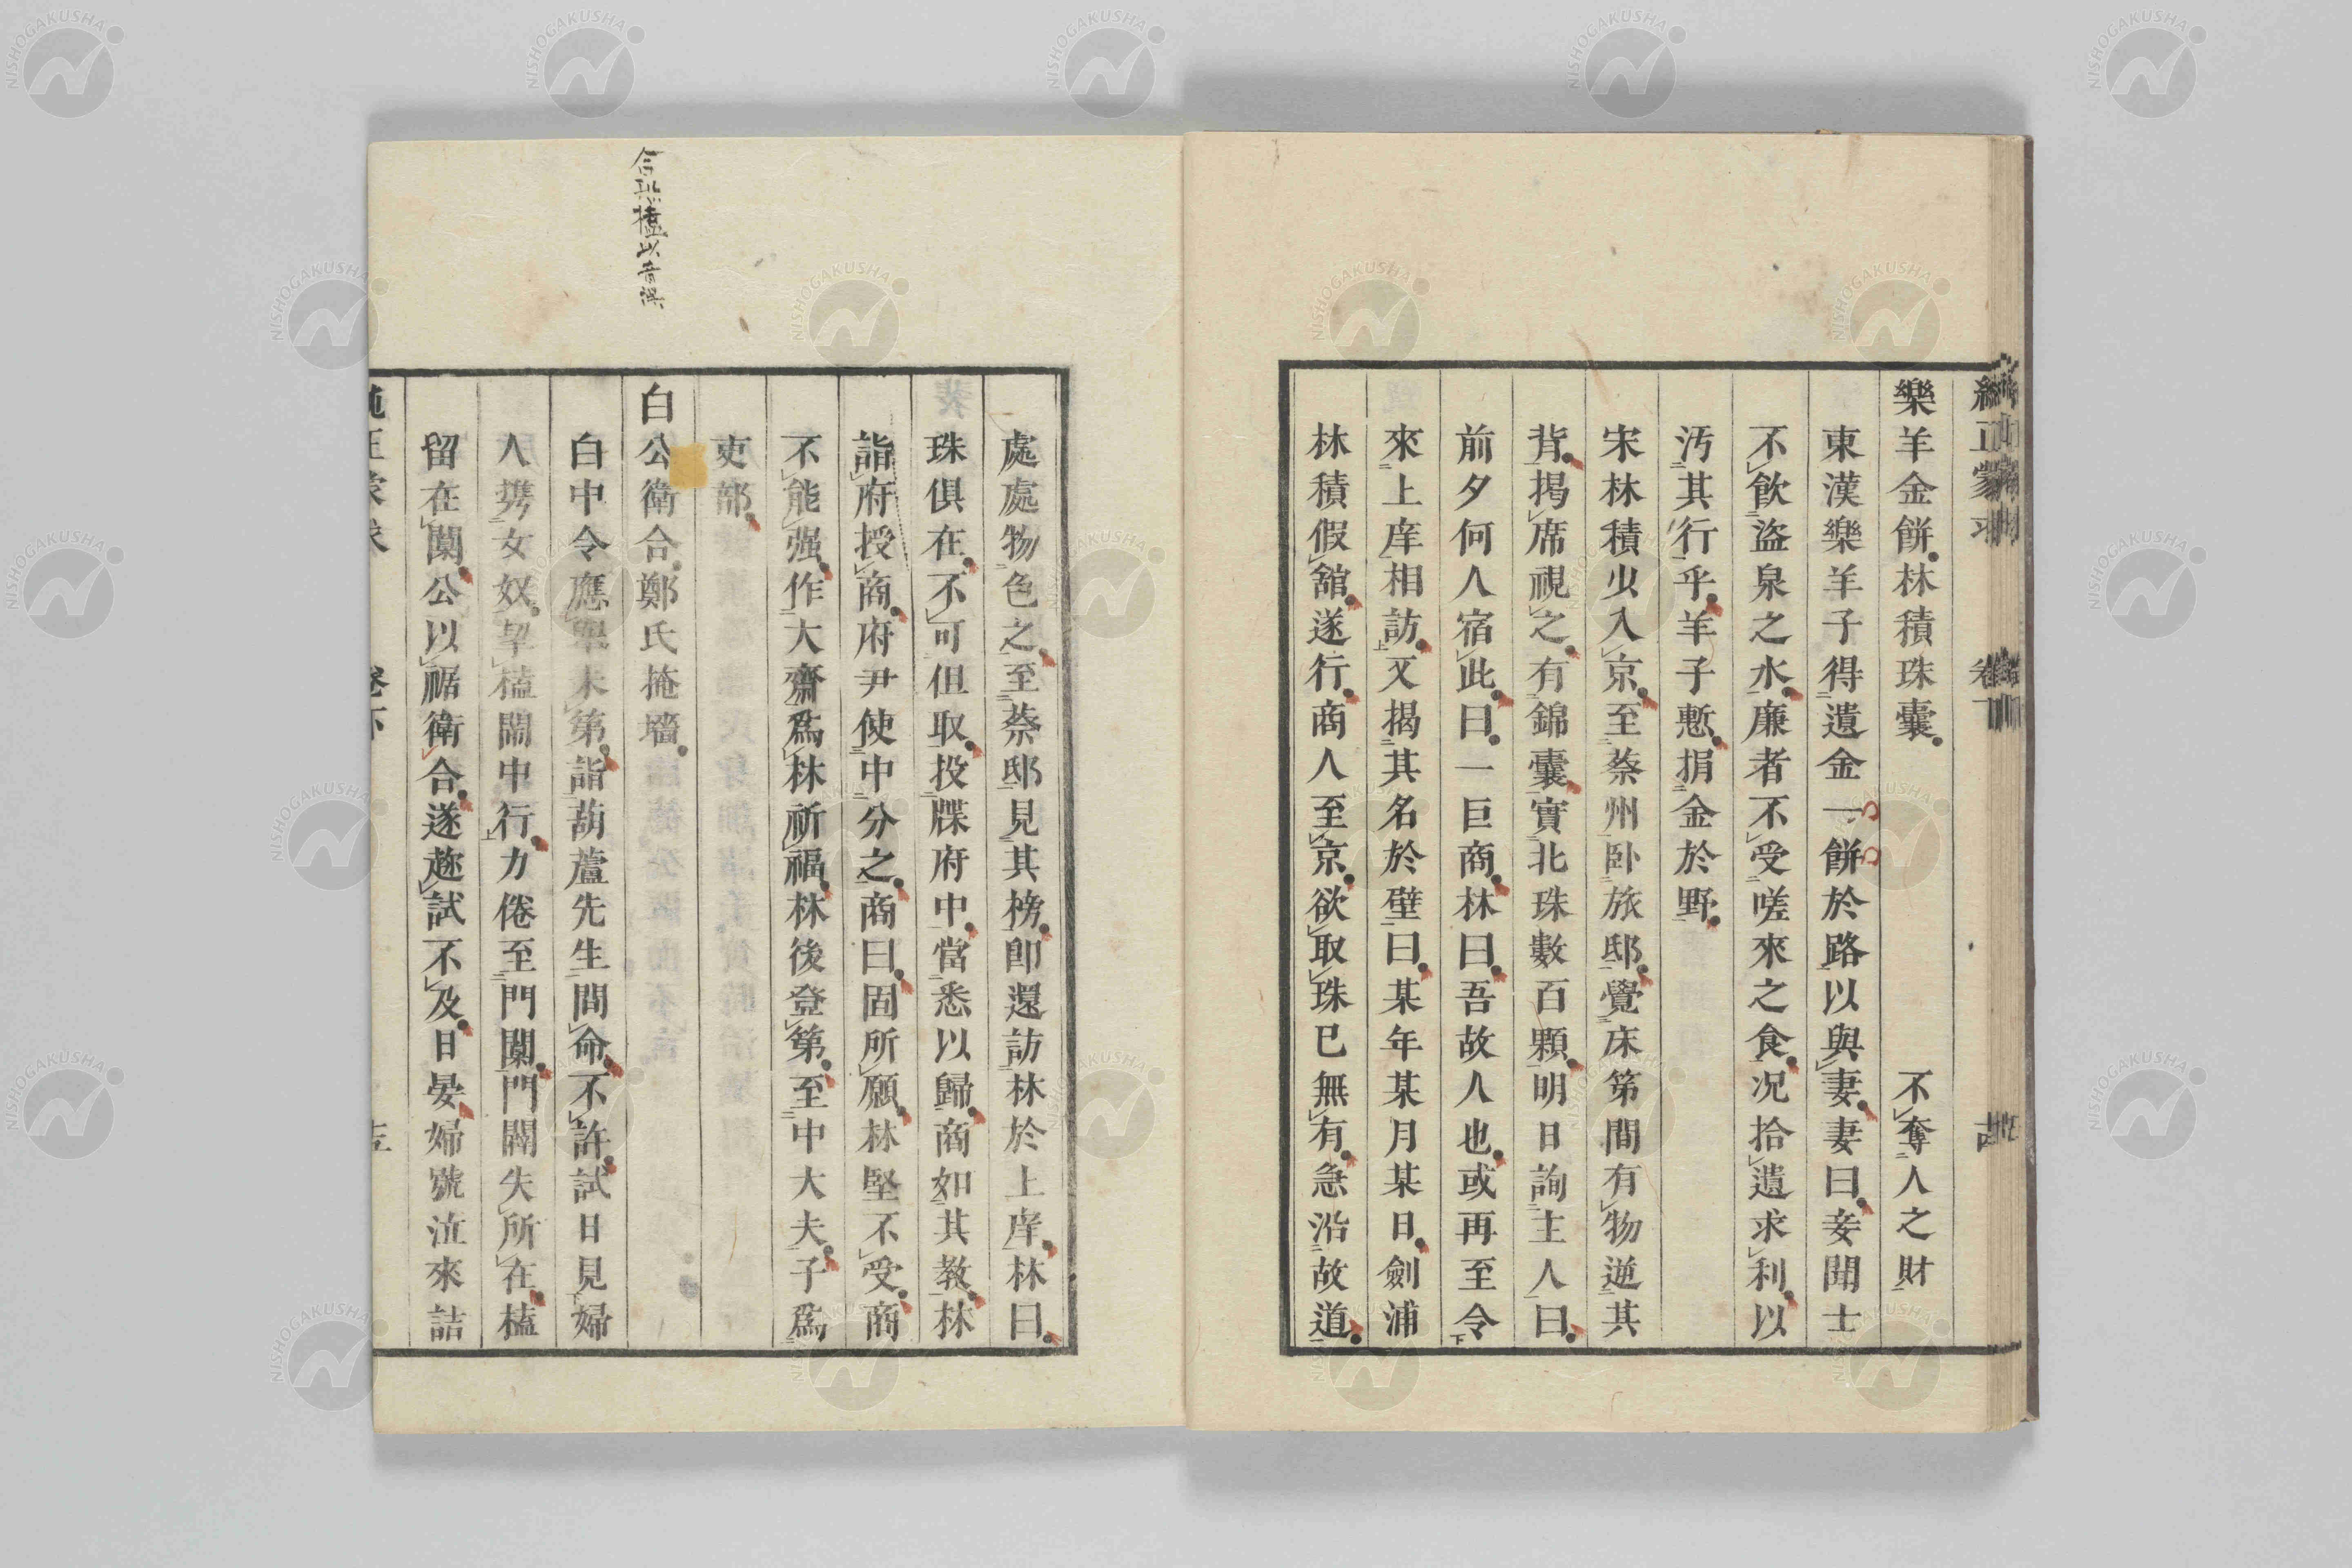 樂羊金餅林積珠囊 不奪人之財
東漢樂羊子得遺金一餅於路以與妻妻曰妾聞士
不飲盜泉之水廉者不受嗟來之食况拾遺求利以
汚其行乎羊子慙捐金於野
宋林積少入京至蔡州卧旅邸覺床第間有物逆其
背揭席視之有錦囊實北珠數百顆明日詢主人曰
前夕何人宿此曰一巨商林曰吾故人也或再至令
來上庠相訪又揭其名於壁曰某年某月某日劍浦
林積假舘遂行商人至京欲取珠已無有急沿故道
處處物色之至蔡邸見其榜即還訪林於上庠林曰
珠俱在不可但取投牒府中當悉以歸商如其教林
詣府授商府尹使中分之商曰固所願林堅不受商
不能强作大齋爲林祈福林後登第至中大夫子爲
吏部
白公衛合鄭氏掩墻
白中令應舉未第詣葫蘆先生問命不許試日見婦
人携女奴挈榼鬧中行力倦至門闌門闢失所在榼
留在闌公以裾衛合遂趂試不及日晏婦號泣來詰